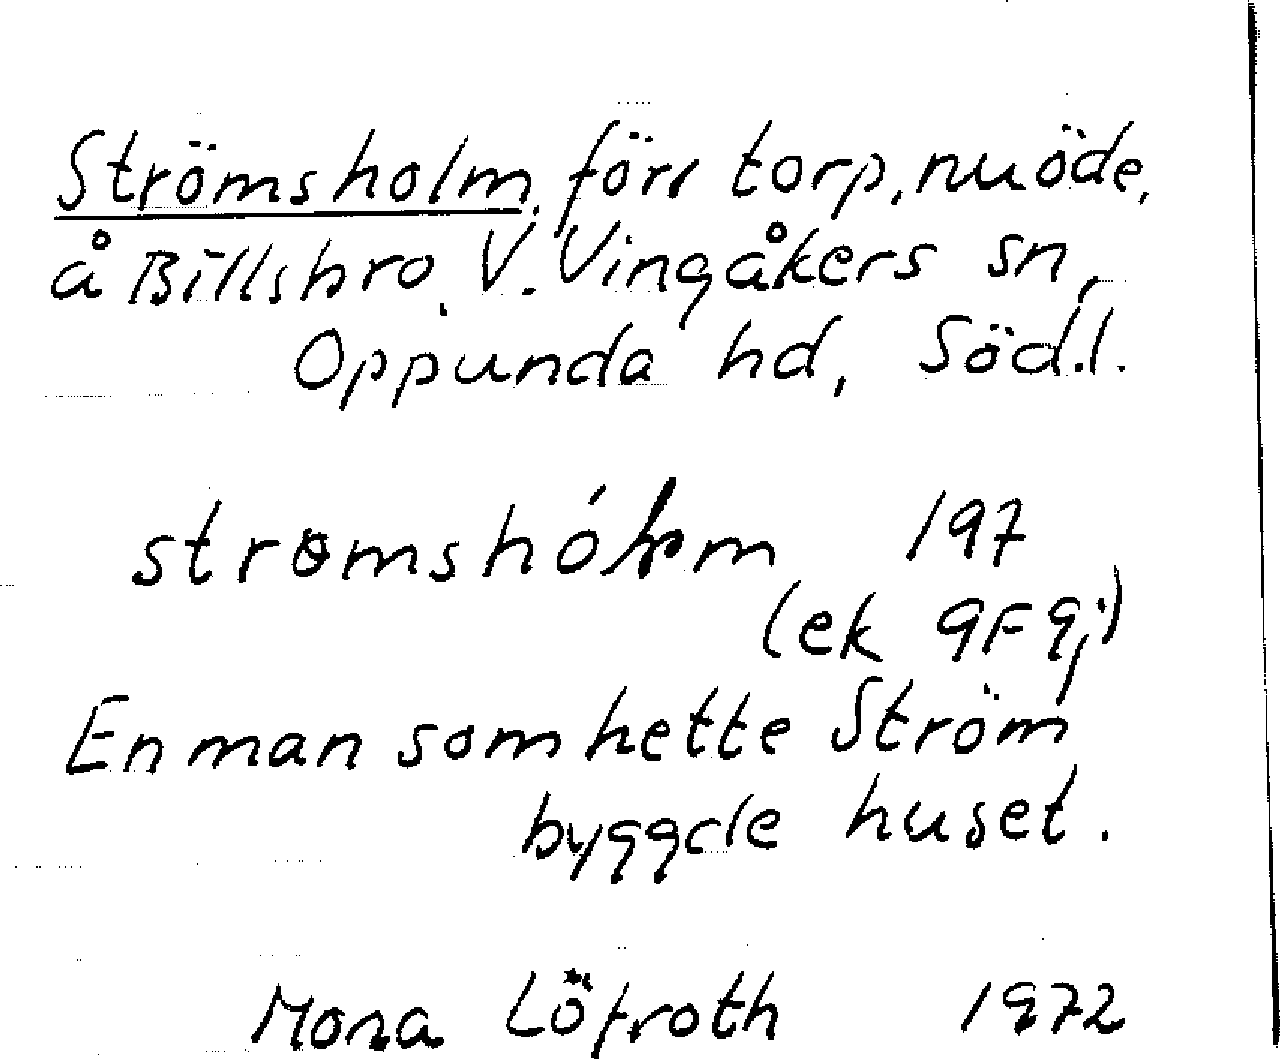 Strömsholm, förr torp, nu öde,
å Billsbro, V. Vingåkers sn,
Oppunda hd, Södl.
197
(ek 9F 9j)
En man som hette Ström
byggde huset.
Mona Löfroth 1972